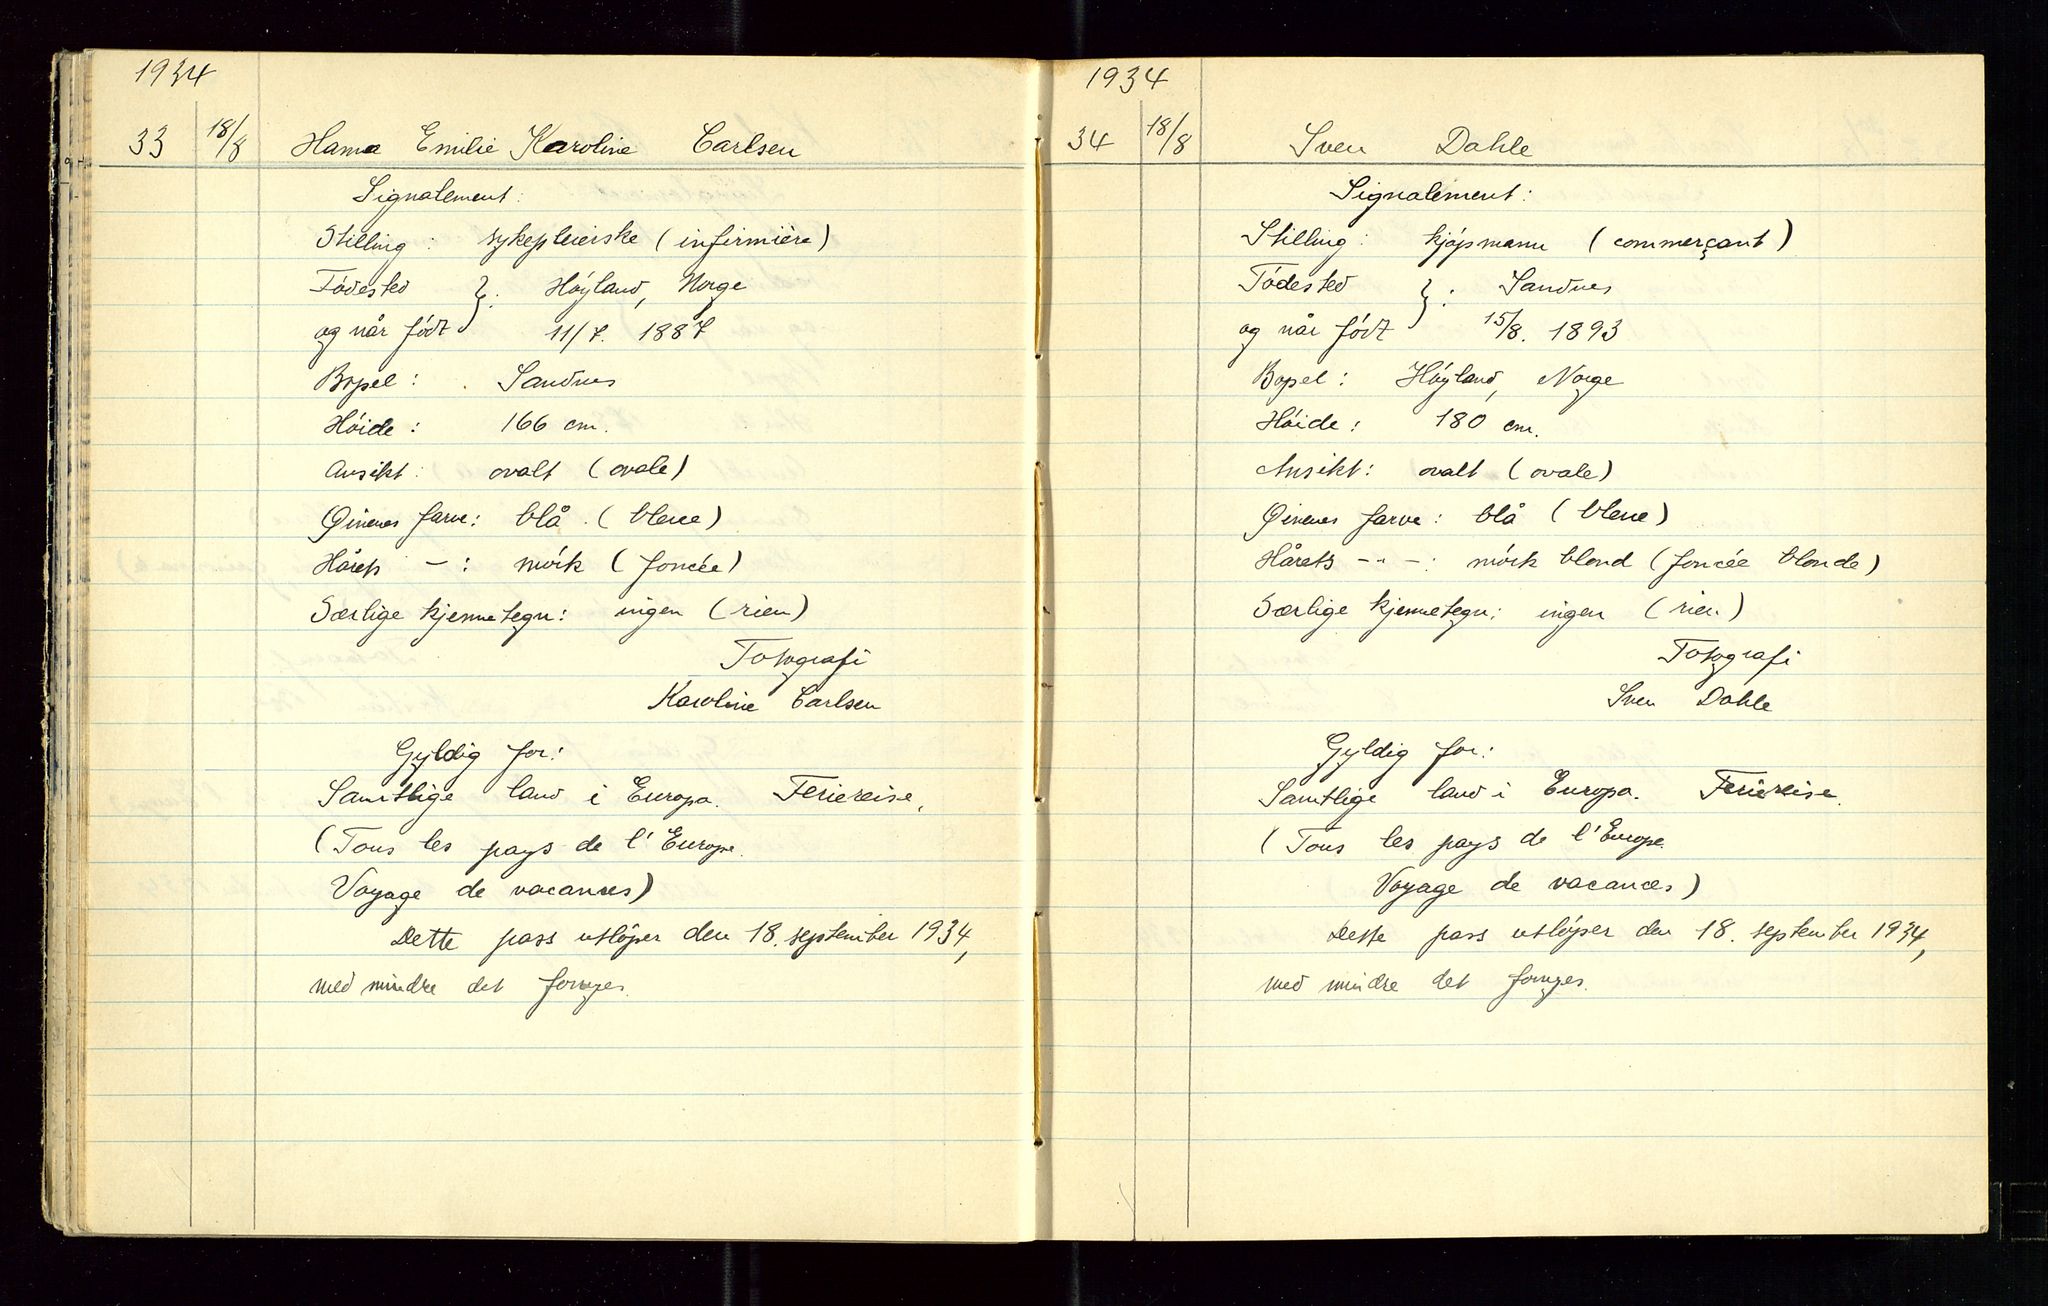 1934
33 18/8 Hanna Emilie Karoline Carlsen
Signalement:
Stilling: sykepleierske (infirmière)
Fødested }: Høyland, Norge
og når født 11/7. 1887
Bopel: Sandnes
Høide: 166 cm.
Ansikt: ovalt (ovale)
Øinenes farve: blå (bleue)
Hårets –: mørk (foncée)
Særlige kjennetegn: ingen (rien)
Fotografi
Karoline Carlsen
Gyldig for:
Samtlige land i Europa. Feriereise.
(Tous les pays de l'Europe.
Voyage de vacances)
Dette pass utløper den 18. september 1934,
med mindre det fornyes.
1934
34 18/8 Sven Dahle
Signalement:
Stilling: kjøpmann (commerçant)
Fødested }: Sandnes
og når født 15/8. 1893
Bopel: Høyland, Norge
Høide: 180 cm.
Ansikt: ovalt (ovale)
Øinenes farve: blå (bleue)
Hårets -"-: mørk blond (foncée blonde)
Særlige kjennetegn: ingen (rien)
Fotografi
Sven Dahle
Gyldig for:
Samtlige land i Europa. Feriereise.
(Tous les pays de l'Europe.
Voyage de vacances)
Dette pass utløper den 18. september 1934,
med mindre det fornyes.